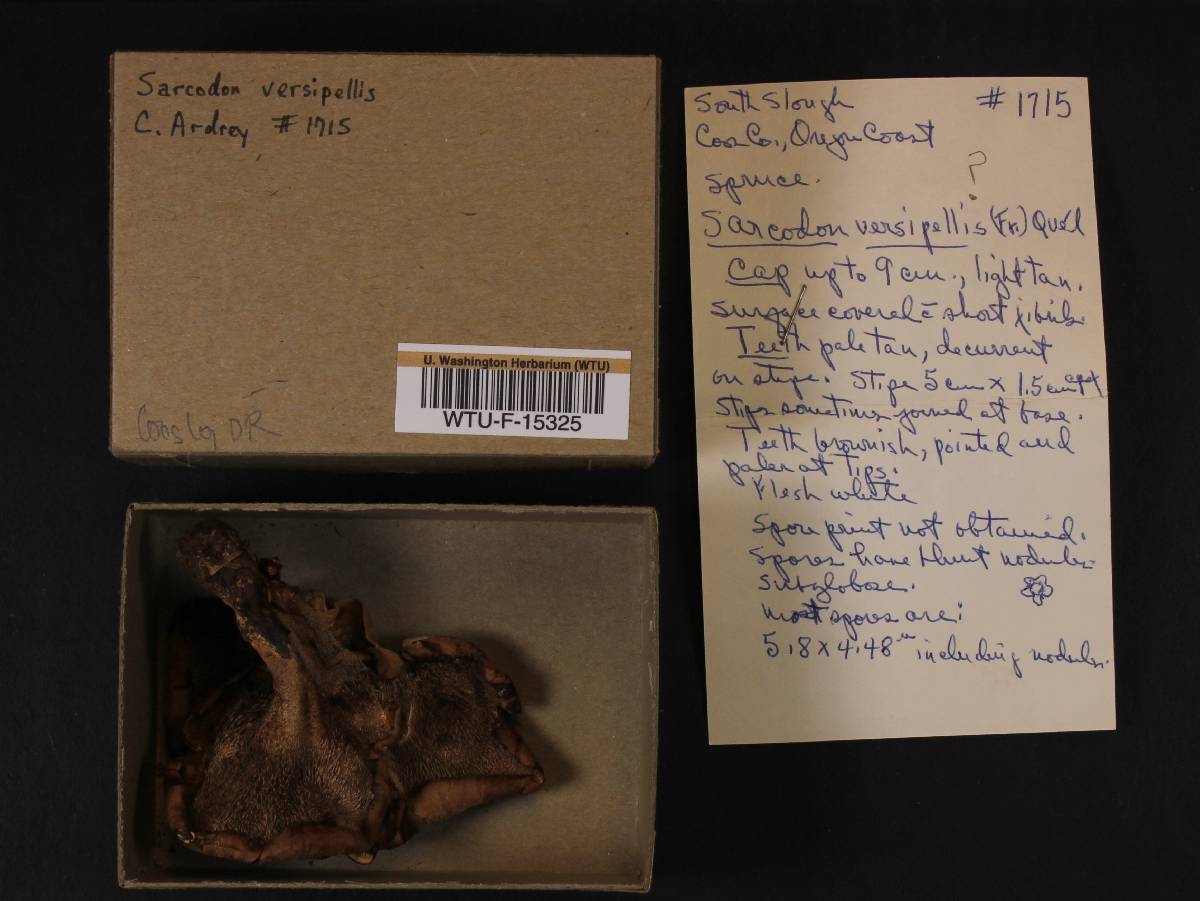 Sarcodon versipellis
C. Ardrey #1715
U. Washington Herbarium (WTU)
WTU-F-15325
Coos Co, OR
South Slough #1715
Coos Co., Oregon Coast
?
spruce.
Sarcodon versipellis (Fr.) Quél
Cap up to 9 cm., light tan.
Surface covered c̄ short fibrils.
Teeth pale tan, decurrent
on stipe. Stipe 5 cm x 1.5 cm
Stips sometimes joined at base.
Teeth brownish, pointed and
paler at Tips.
Flesh white
Spore print not obtained.
Spores have blunt nodules
subglobose.
most spores are:
5.8 x 4.48 including nodules.